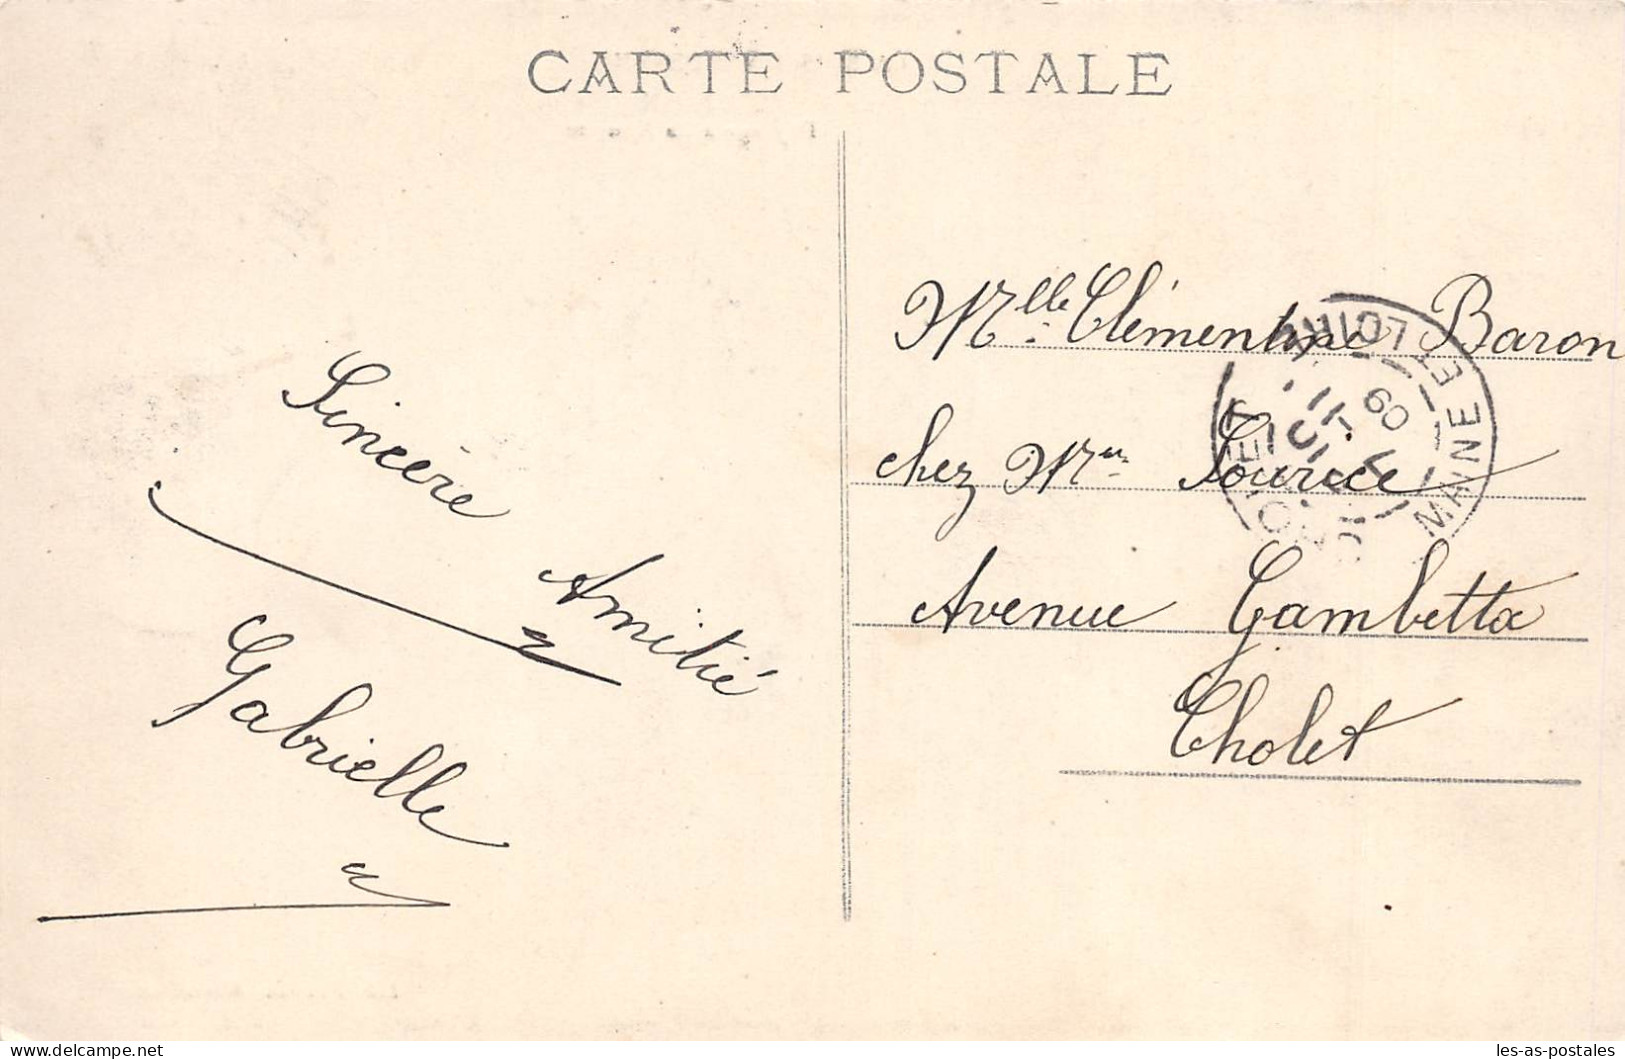 CARTE POSTALE
Sincère Amitié
Gabrielle
Mlle Clémentine Baron
chez Mme Sourice
Avenue Gambetta
Cholet
MAINE ET LOIRE
09
delcampe.net
les-as-postales